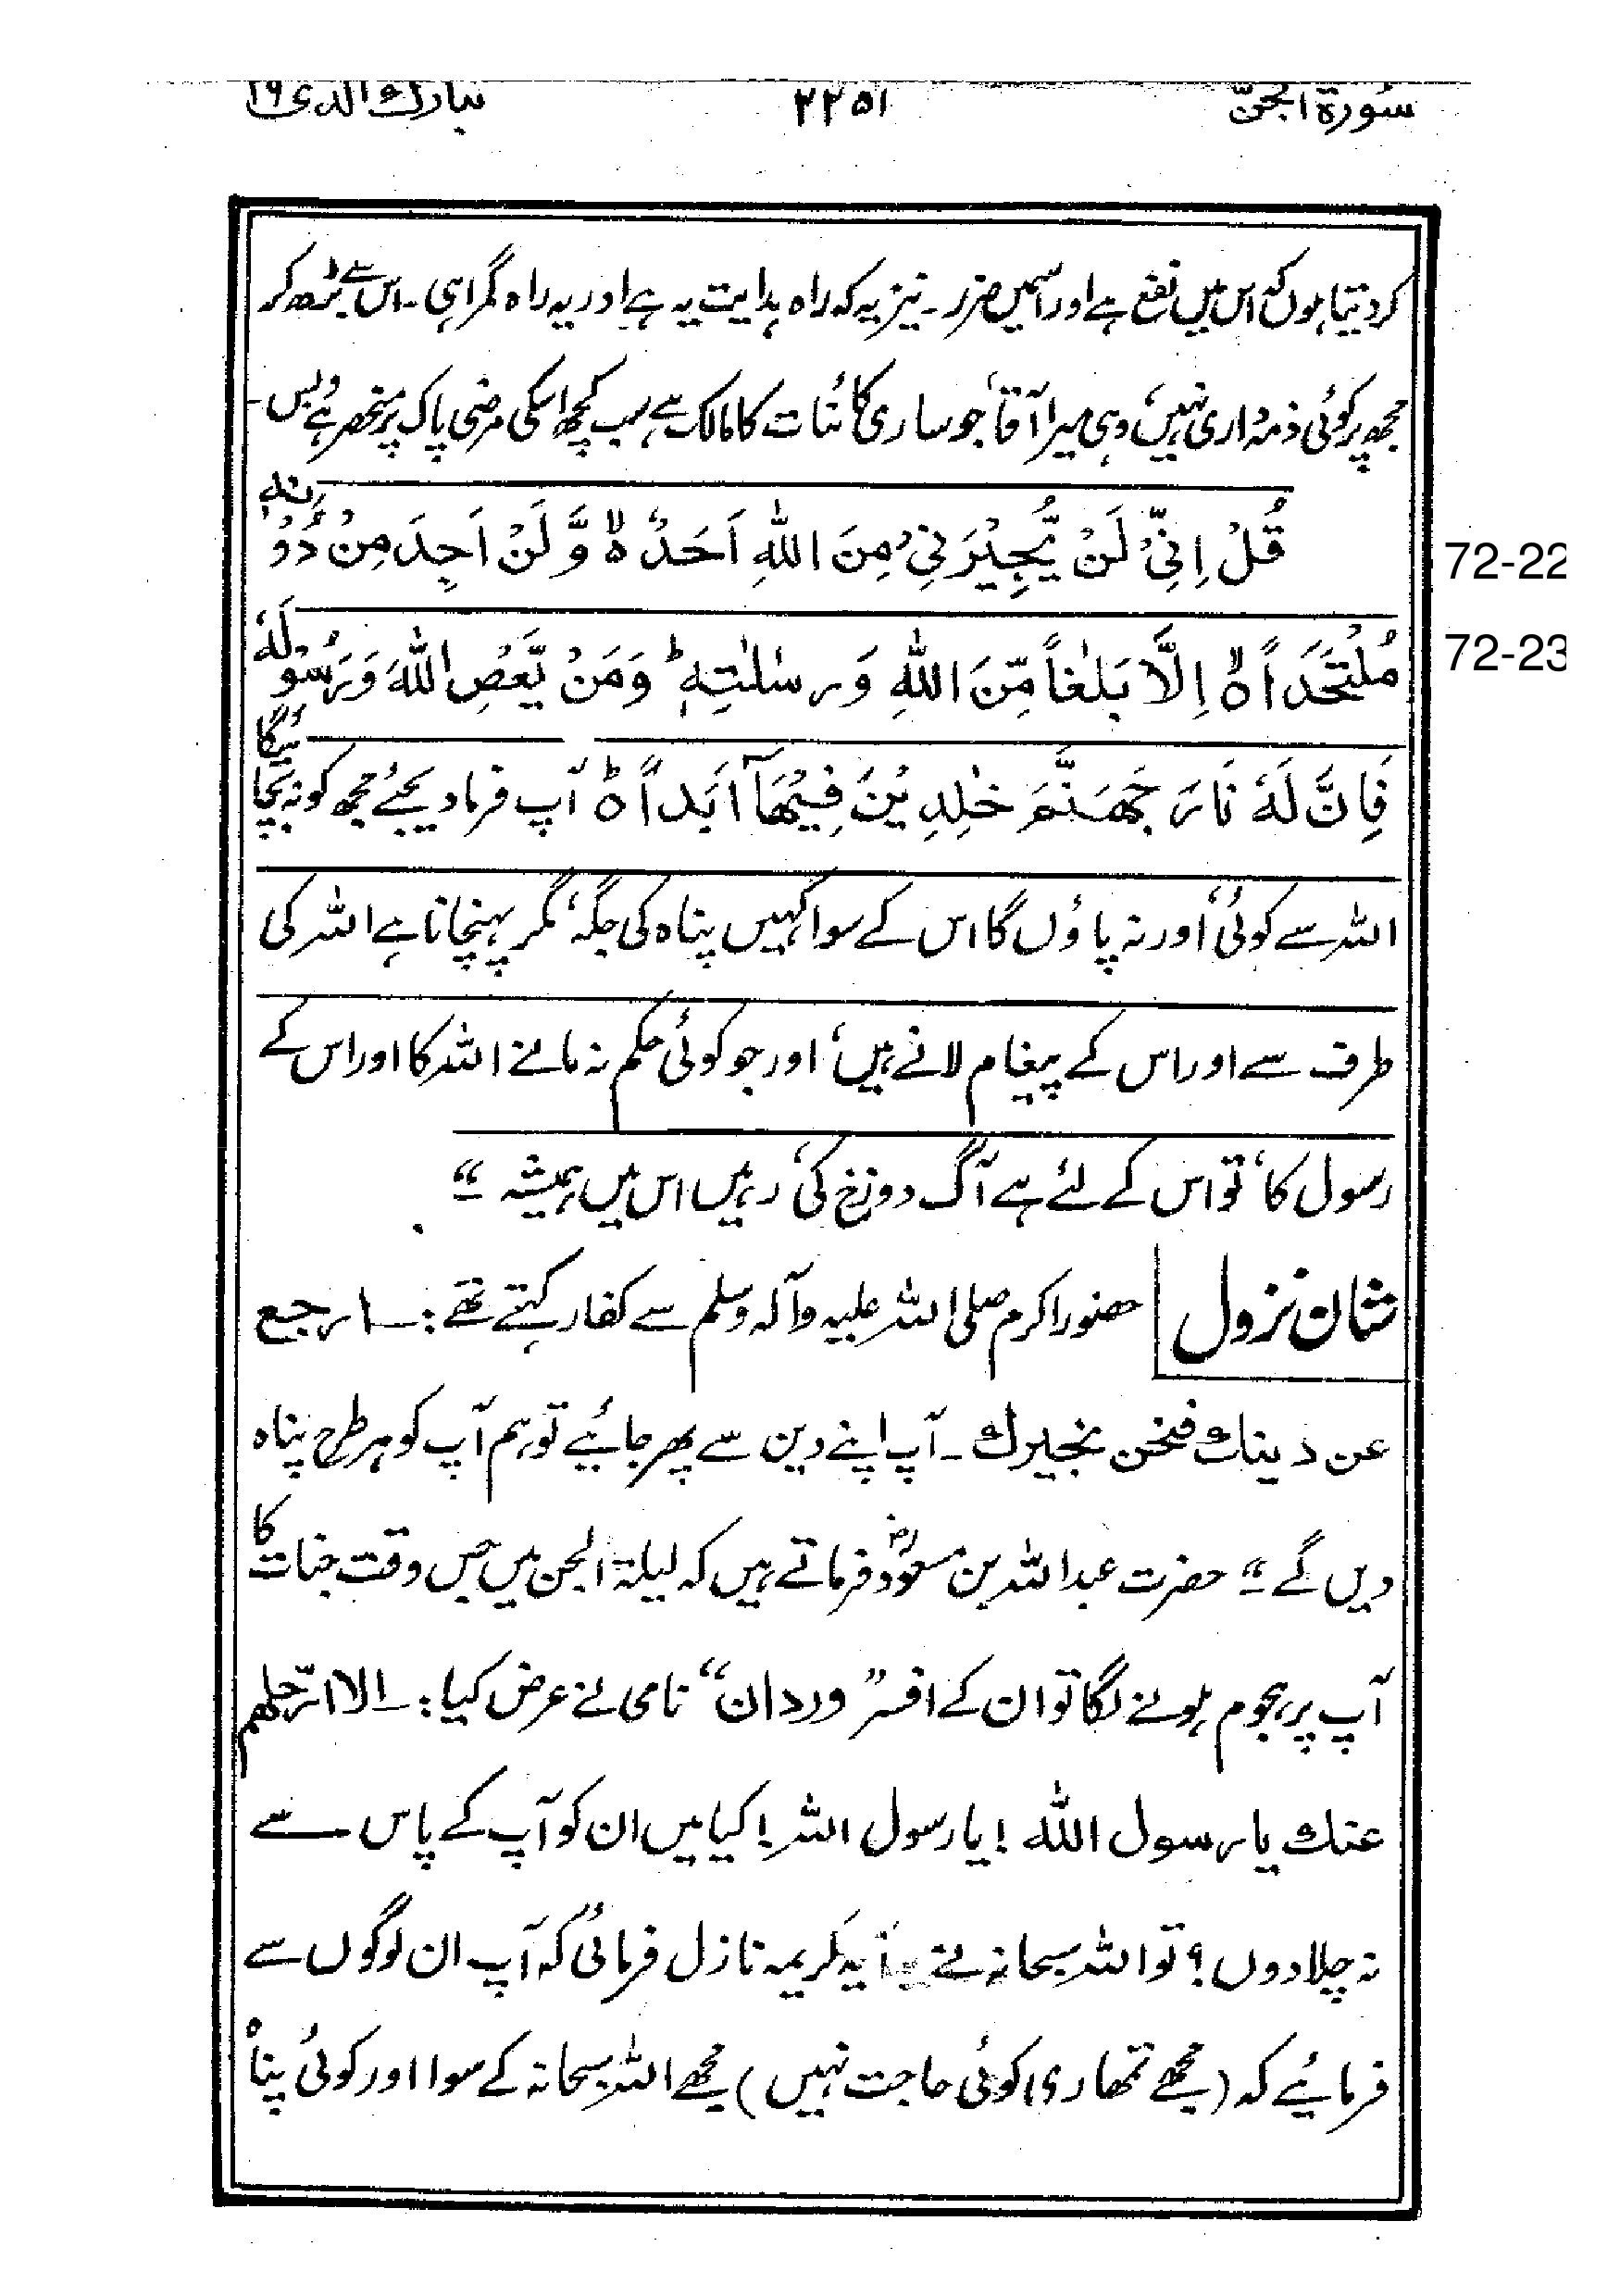 سُورۃ الجنّ ۲۲۵۱ تبارك الذى ۲۹
کر دیتا ہوں کہ اس میں نفع ہے اور اسمیں ضرر۔ نیز یہ کہ راہ ہدایت یہ ہے اور یہ راہ گمراہی۔ اس سے بڑھ کر
مجھ پر کوئی ذمہ داری نہیں، وہی میرا آقا، جو ساری کائنات کا مالک ہے سب کچھ اسکی مرضی پاک پر منحصر ہے، بس۔
قُلْ اِنِّیْ لَنْ یُّجِیْرَنِیْ مِنَ اللّٰهِ اَحَدٌ ۙ وَّ لَنْ اَجِدَ مِنْ دُوْنِهٖ
72-22
مُلْتَحَدًا ۙ اِلَّا بَلٰغًا مِّنَ اللّٰهِ وَرِسٰلٰتِهٖ ؕ وَمَنْ یَّعْصِ اللّٰهَ وَرَسُوْلَهٗ
72-23
فَاِنَّ لَهٗ نَارَ جَهَنَّمَ خٰلِدِیْنَ فِیْهَآ اَبَدًا ؕ آپ فرما دیجئے مجھ کو نہ بچائیگا
اللہ سے کوئی، اور نہ پاؤں گا اس کے سوا کہیں پناہ کی جگہ، مگر پہنچانا ہے اللہ کی
طرف سے اور اس کے پیغام لانے ہیں، اور جو کوئی حکم نہ مانے اللہ کا اور اس کے
رسول کا، تو اس کے لئے ہے آگ دوزخ کی، رہیں اس میں ہمیشہ ۔“
شان نزول حضور اکرم صلی اللہ علیہ وآلہ وسلم سے کفار کہتے تھے :۔ ارجع
عن دينك فنحن نجيرك ۔ آپ اپنے دین سے پھر جائیے تو ہم آپ کو ہر طرح پناہ
دیں گے ۔“ حضرت عبداللہ بن مسعودؓ فرماتے ہیں کہ لیلۃ الجن میں جس وقت جنات کا
آپ پر ہجوم ہونے لگا تو ان کے افسر ”وردان“ نامی نے عرض کیا :۔ الا ارحلهم
عنك يا رسول الله ! یا رسول اللہ! کیا میں ان کو آپ کے پاس سے
نہ چلا دوں؟ تو اللہ سبحانہ نے یہ آیہ کریمہ نازل فرمائی کہ آپ ان لوگوں سے
فرمائیے کہ (مجھے تمھاری کوئی حاجت نہیں) مجھے اللہ سبحانہ کے سوا اور کوئی پناہ